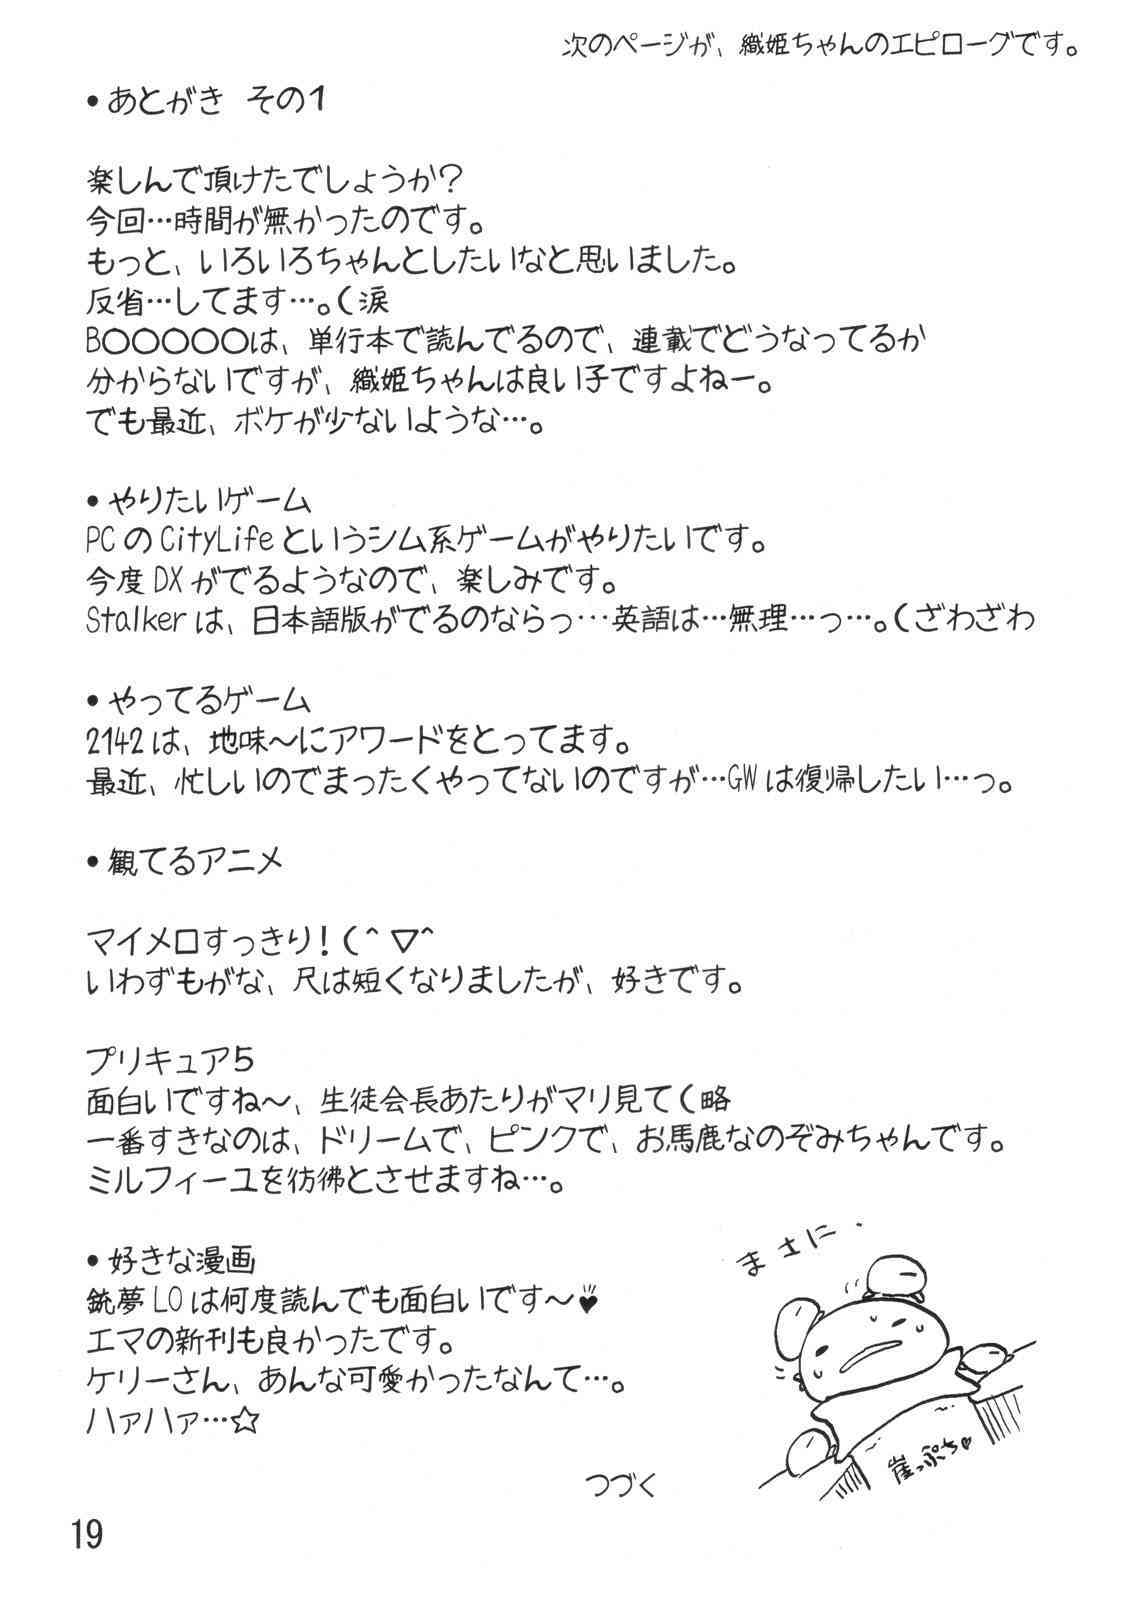 次のページが、織姫ちゃんのエピローグです。
•あとがき その1
楽しんで頂けたでしょうか?
今回…時間が無かったのです。
もっと、いろいろちゃんとしたいなと思いました。
反省…してます…。(涙
B○○○○○は、単行本で読んでるので、連載でどうなってるか
分からないですが、織姫ちゃんは良い子ですよねー。
でも最近、ボケが少ないような…。
•やりたいゲーム
PCのCityLifeというシム系ゲームがやりたいです。
今度DXがでるようなので、楽しみです。
Stalkerは、日本語版がでるのならっ…英語は…無理…っ…。(ざわざわ
•やってるゲーム
2142は、地味〜にアワードをとってます。
最近、忙しいのでまったくやってないのですが…GWは復帰したい…っ。
•観てるアニメ
マイメロすっきり!(^▽^
いわずもがな、尺は短くなりましたが、好きです。
プリキュア5
面白いですね〜、生徒会長あたりがマリ見て(略
一番すきなのは、ドリームで、ピンクで、お馬鹿なのぞみちゃんです。
ミルフィーユを彷彿とさせますね…。
•好きな漫画
銃夢LOは何度読んでも面白いです〜♥
エマの新刊も良かったです。
ケリーさん、あんな可愛かったなんて…。
ハァハァ…☆
まさに.
崖っぷち♥
つづく
19